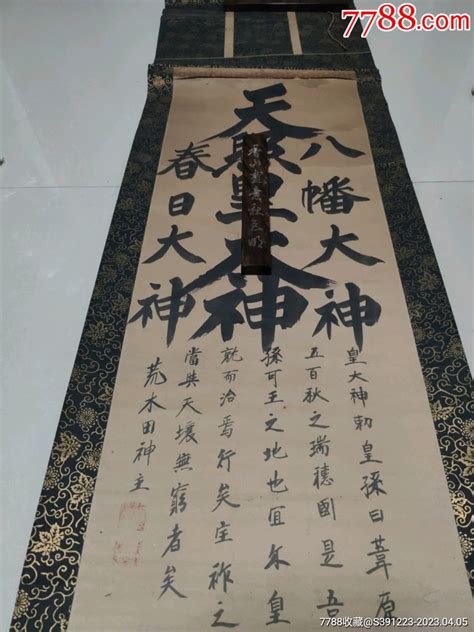 7788.com
八幡大神
天照皇大神
春日大神
皇大神勅皇孫曰葦原
五百秋之瑞穂國是吾
孫可王之地也宜尓皇
就而治焉行矣宝祚之
當與天壤無窮者矣
荒木田神主
7788收藏@S391223-2023.04.05